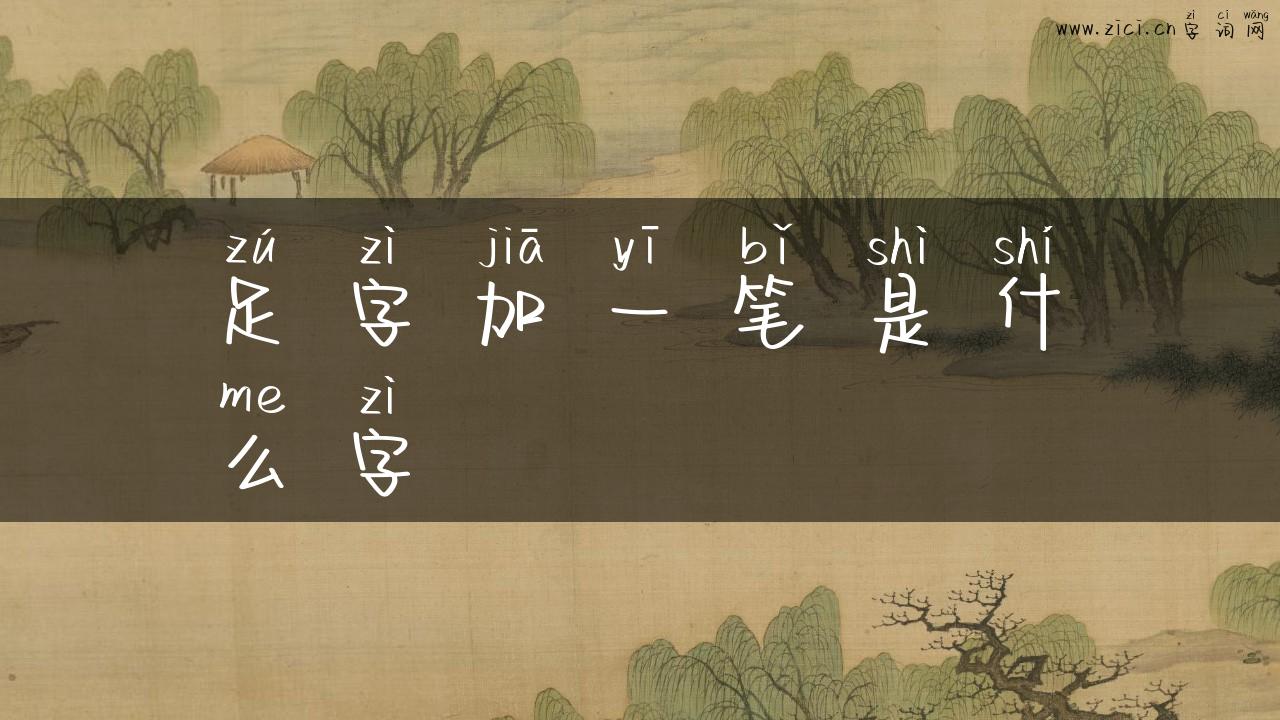 zì cí wǎng
www.zici.cn 字词网
zú zì jiā yī bǐ shì shí
足字加一笔是什
me zì
么字